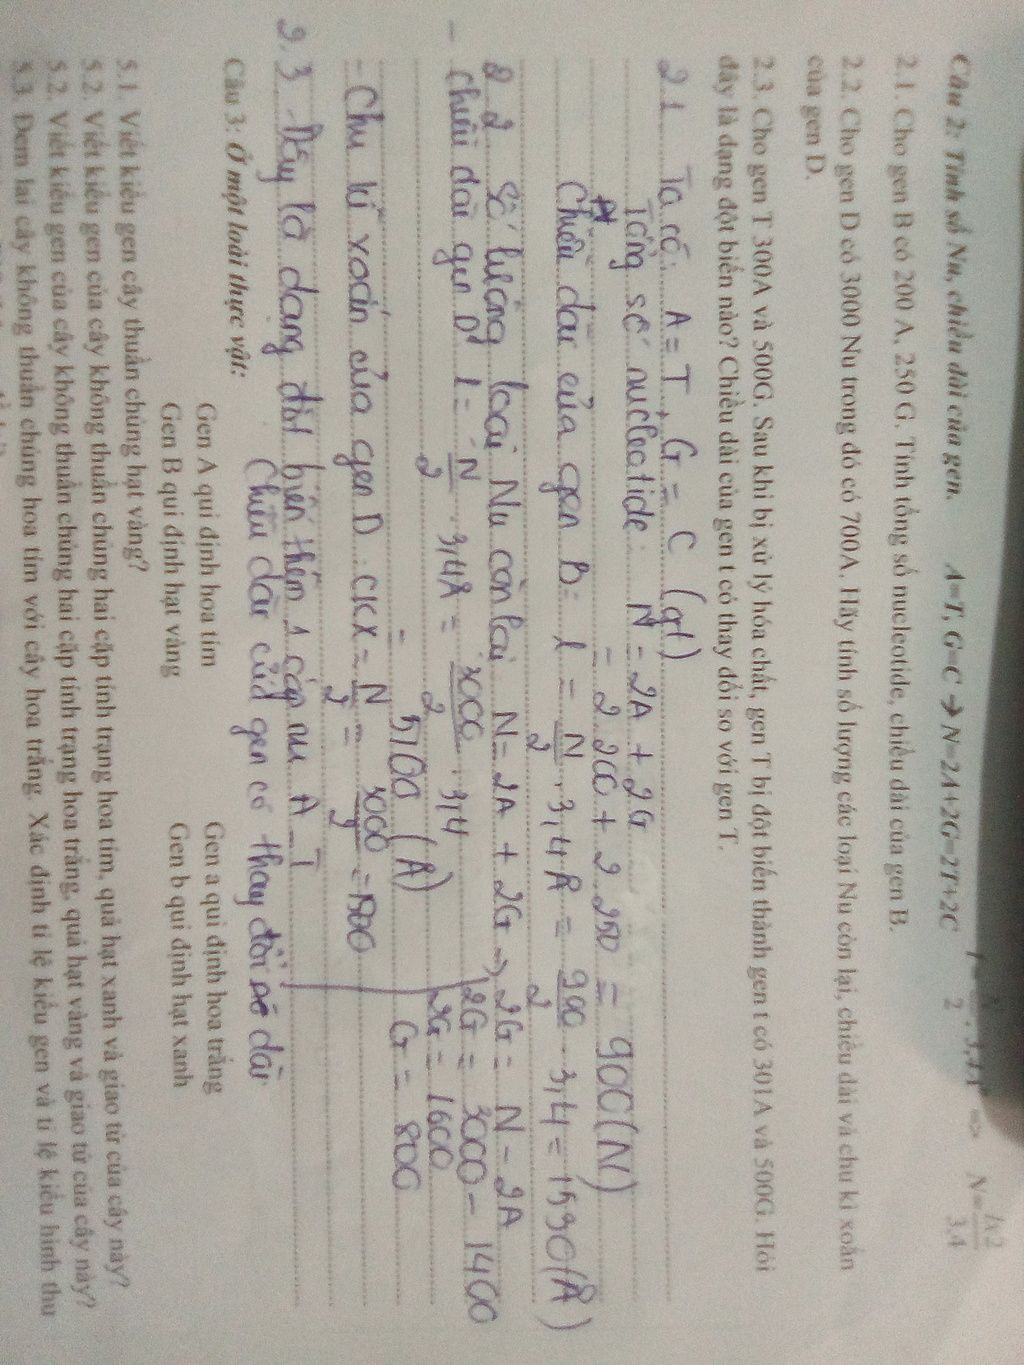 Câu 2: Tính số Nu, chiều dài của gen. A=T, G=C → N=2A+2G=2T+2C
2 . 3,4 => N= lx2 / 3,4
2.1. Cho gen B có 200 A, 250 G. Tính tổng số nucleotide, chiều dài của gen B.
2.2. Cho gen D có 3000 Nu trong đó có 700A. Hãy tính số lượng các loại Nu còn lại, chiều dài và chu kì xoắn
của gen D.
2.3. Cho gen T 300A và 500G. Sau khi bị xử lý hóa chất, gen T bị đột biến thành gen t có 301A và 500G. Hỏi
đây là dạng đột biến nào? Chiều dài của gen t có thay đổi so với gen T.
2.1 Ta có: A = T, G = C (gt)
Tổng số nucleotide: N = 2A + 2G
= 2.200 + 2.250 = 900(N)
Chiều dài của gen B: l = N/2 . 3,4 Å = 900/2 . 3,4 = 1530(Å)
2.2 Số lượng loại Nu còn lại N = 2A + 2G → 2G = N - 2A
2G = 3000 - 1400
2G = 1600
G = 800
- Chiều dài gen D: l = N/2 . 3,4Å = 3000/2 . 3,4
= 5100 (Å)
- Chu kì xoắn của gen D: CKX = N/2 = 3000/2 = 1500
2.3 - Đây là dạng đột biến thêm 1 cặp nu A_T
Chiều dài của gen có thay đổi dài
Câu 3: Ở một loài thực vật:
Gen A qui định hoa tím Gen a qui định hoa trắng
Gen B qui định hạt vàng Gen b qui định hạt xanh
5.1. Viết kiểu gen cây thuần chủng hạt vàng?
5.2. Viết kiểu gen của cây không thuần chủng hai cặp tính trạng hoa tím, quả hạt xanh và giao tử của cây này?
5.2. Viết kiểu gen của cây không thuần chủng hai cặp tính trạng hoa trắng, quả hạt vàng và giao tử của cây này?
5.3. Đem lai cây không thuần chủng hoa tím với cây hoa trắng. Xác định tỉ lệ kiểu gen và tỉ lệ kiểu hình thu